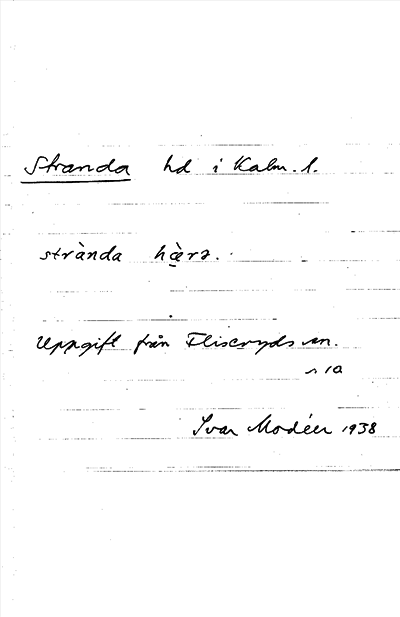 Stranda hd i Kalm. l.
strànda hæ̀rə.
Uppgift från Fliseryds sn.
Ivar Modéer 1938